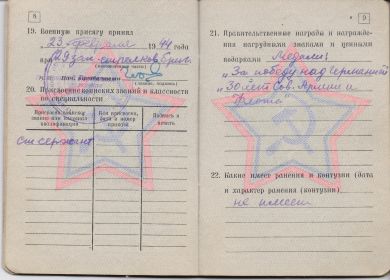 8
19. Военную присягу принял
23 февраля 1944 года
при 29 зап. стрелков. бриг.
20. Присвоение воинских званий и классности
по специальности
Присвоено воинское звание или классная квалификация
Кем присвоено, дата и номер приказа
Подпись и печать
Ст сержант
9
21. Правительственные награды и награжде-
ния нагрудными знаками и ценными
подарками Медали:
"За победу над Германией"
"30 лет Сов. Армии и
Флота"
22. Какие имеет ранения и контузии (дата
и характер ранения (контузии)
не имеет